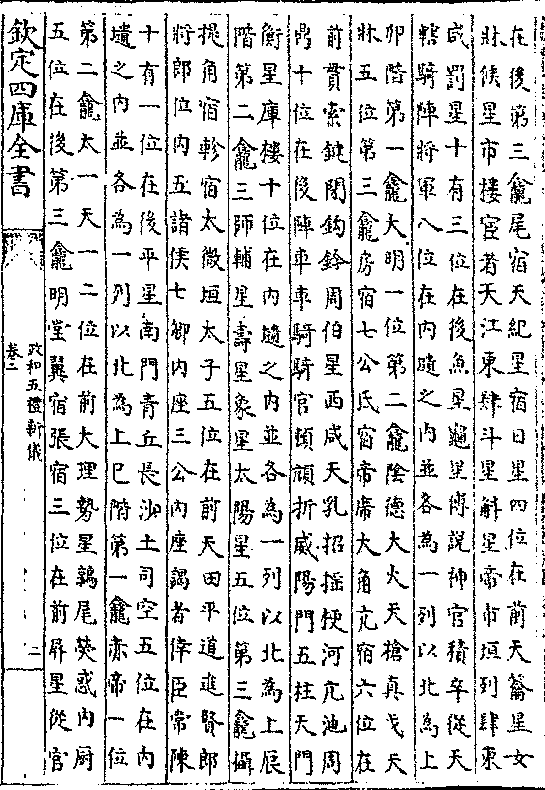 在後第三龕尾宿天紀星宿日星四位在前天籥星女
牀候星市樓宦者天江東肆斗星斛星帝市垣列肆東
咸罰星十有三位在後魚星龜星傅說神宫積卒從天
轄騎陣將軍八位在内壝之内並各為一列以北為上
卯階第一龕大明一位第二龕隂德大火天槍真戈天
牀五位第三龕房宿七公氐宿帝席大角亢宿六位在
前貫索鍵閉鈎鈐周伯星西咸天乳招揺梗河亢池周
鼎十位在後陣車車騎騎官頓頑折威陽門五柱天門
衡星庫樓十位在内壝之内並各為一列以北為上辰
階第二龕三師輔星壽星象星太陽星五位第三龕攝
提角宿軫宿太微垣太子五位在前天田平道進賢郎
將郎位内五諸侯七卿内座三公内座謁者倖臣常陳
十有一位在後平星南門青丘長沙土司空五位在内
壝之内並各為一列以北為上巳階第一龕赤帝一位
第二龕太一天一二位在前大理勢星鶉尾熒惑内厨
五位在後第三龕明堂翼宿張宿三位在前屏星從官
欽定四庫全書
政和五禮新儀
卷二
二